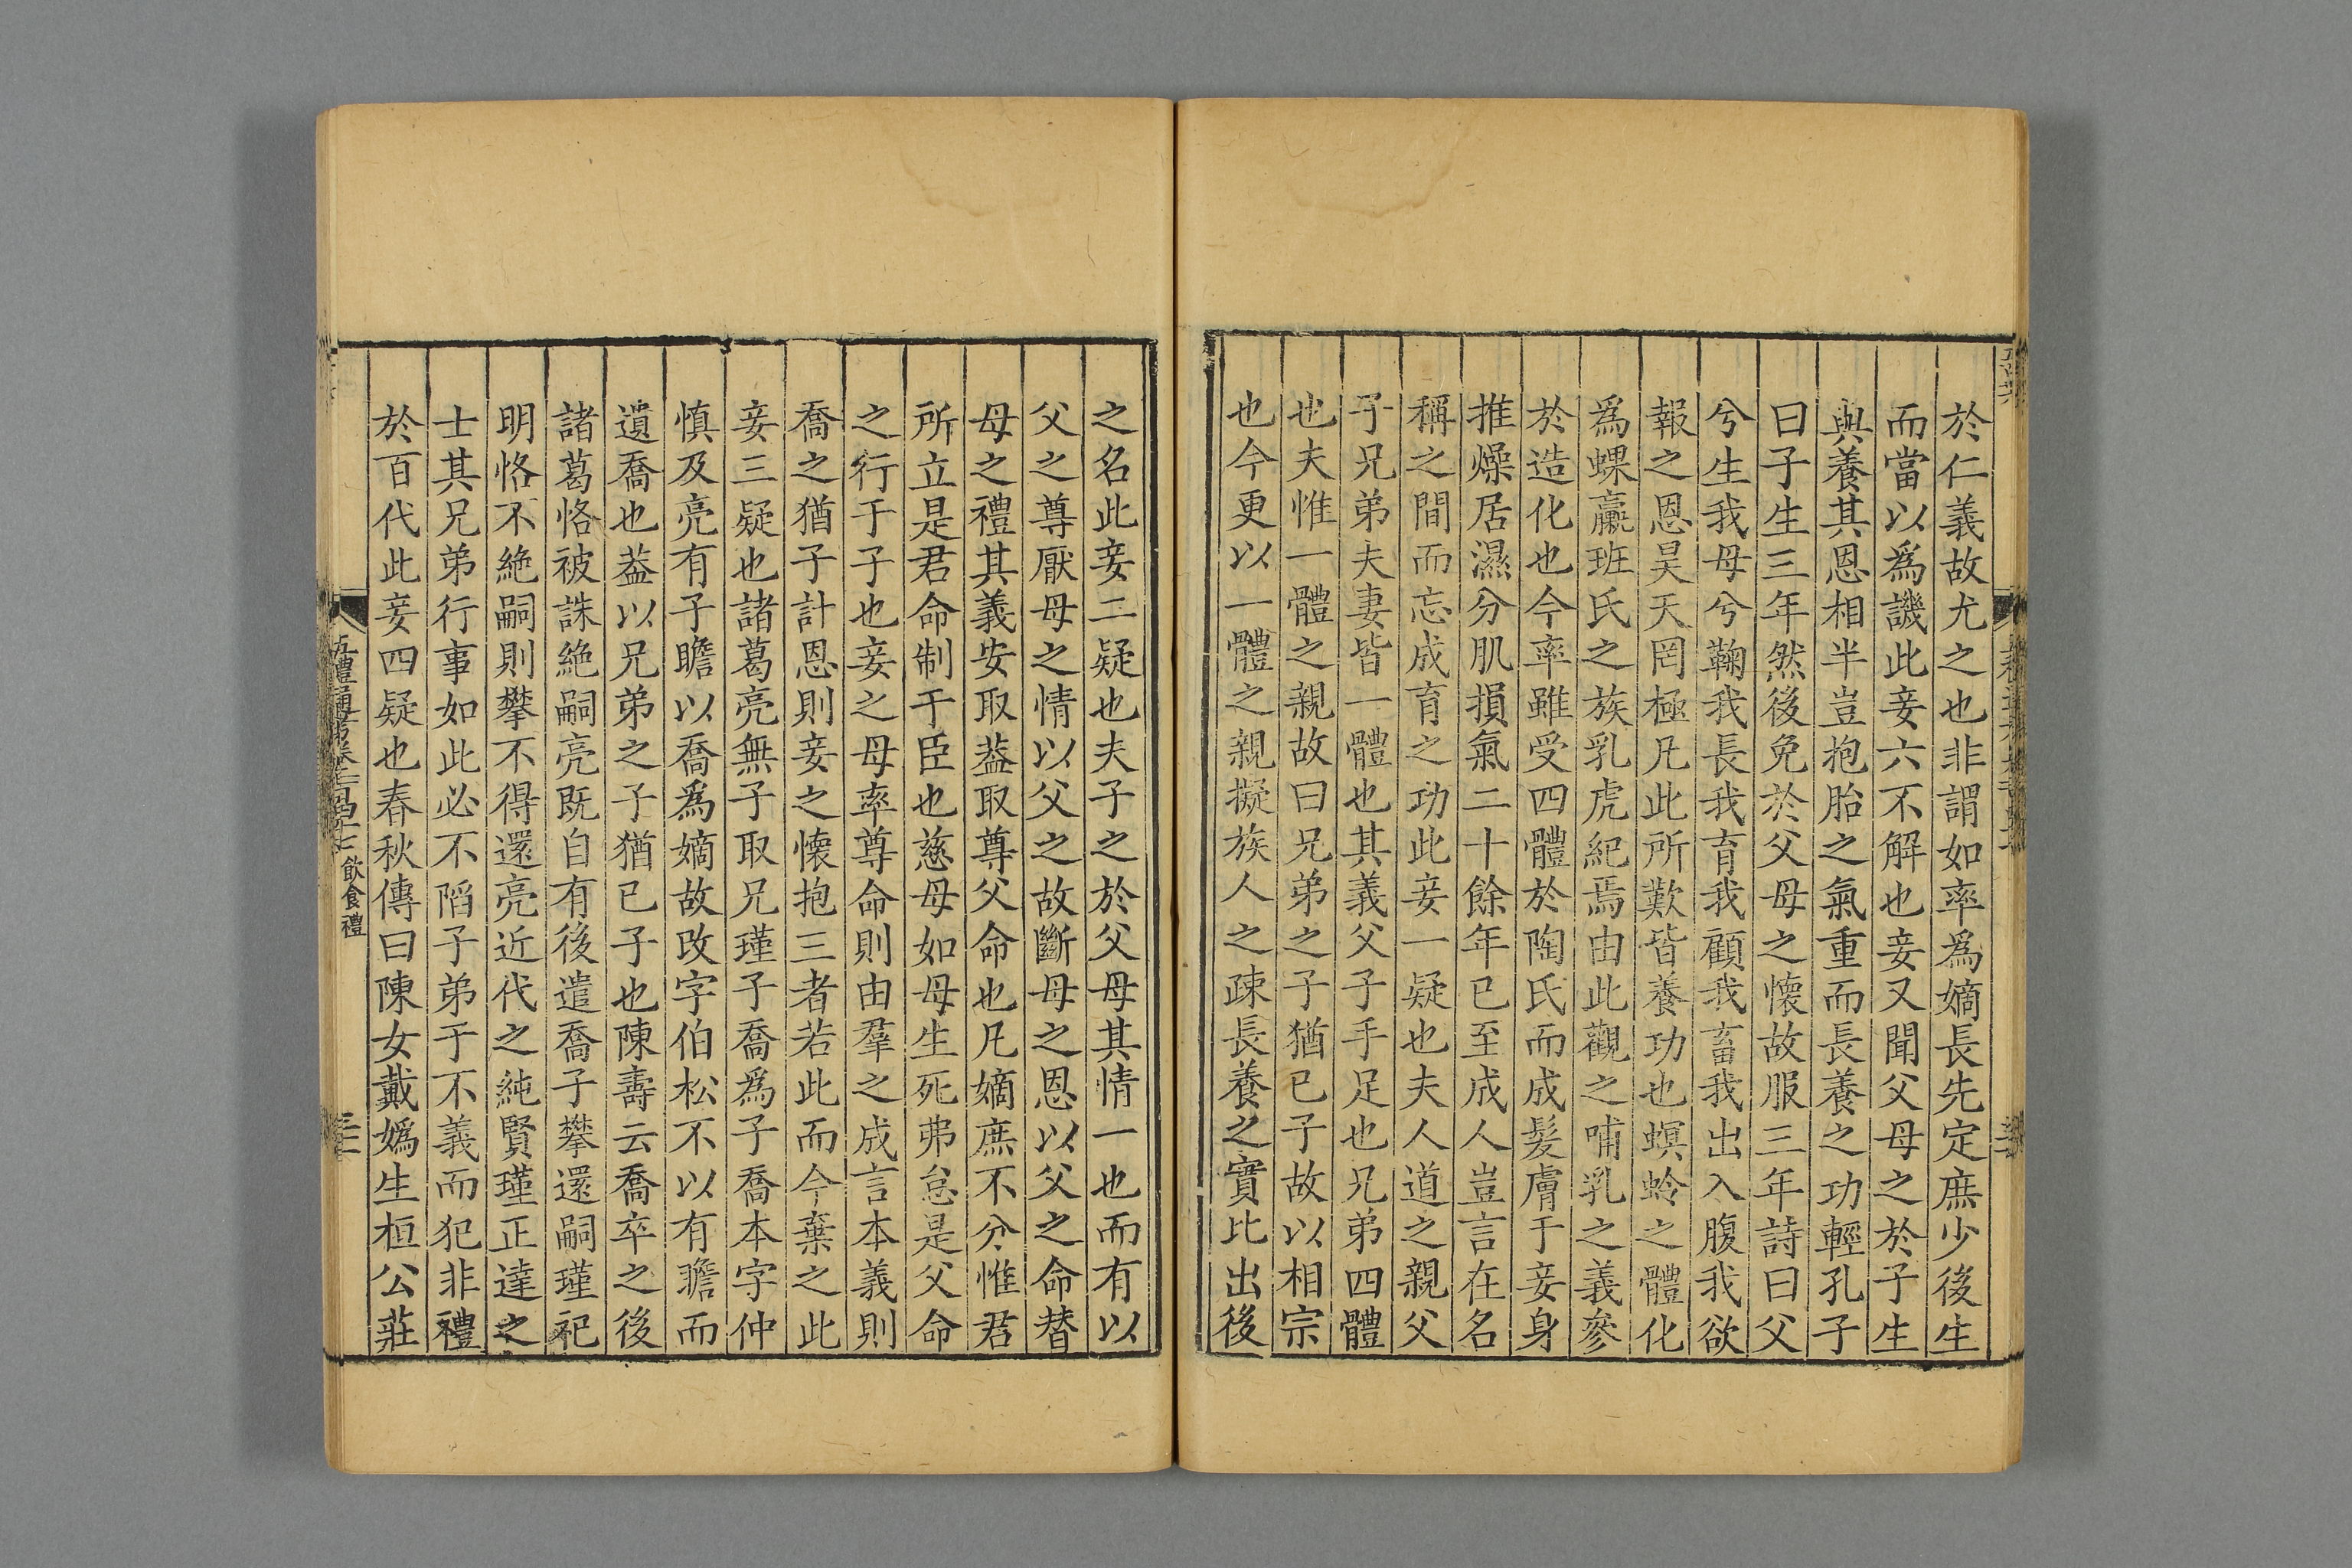 於仁義故尤之也非謂如率爲嫡長先定庶少後生
而當以爲譏此妾六不解也妾又聞父母之於子生
與養其恩相半豈抱胎之氣重而長養之功輕孔子
曰子生三年然後免於父母之懷故服三年詩曰父
兮生我母兮鞠我長我育我顧我畜我出入腹我欲
報之恩昊天罔極凡此所歎皆養功也螟蛉之體化
爲蜾蠃班氏之族乳虎紀焉由此觀之哺乳之義參
於造化也今率雖受四體於陶氏而成髮膚于妾身
推燥居濕分肌損氣二十餘年已至成人豈言在名
稱之間而忘成育之功此妾一疑也夫人道之親父
子兄弟夫妻皆一體也其義父子手足也兄弟四體
也夫惟一體之親故曰兄弟之子猶已子故以相宗
也今更以一體之親擬族人之疎長養之實比出後
之名此妾二疑也夫子之於父母其情一也而有以
父之尊厭母之情以父之故斷母之恩以父之命替
母之禮其義安取葢取尊父命也凡嫡庶不分惟君
所立是君命制于臣也慈母如母生死弗怠是父命
之行于子也妾之母率尊命則由羣之成言本義則
喬之猶子計恩則妾之懷抱三者若此而今棄之此
妾三疑也諸葛亮無子取兄瑾子喬爲子喬本字仲
慎及亮有子瞻以喬爲嫡故改字伯松不以有瞻而
遺喬也葢以兄弟之子猶已子也陳壽云喬卒之後
諸葛恪被誅絶嗣亮既自有後遣喬子攀還嗣瑾祀
明恪不絶嗣則攀不得還亮近代之純賢瑾正達之
士其兄弟行事如此必不陷子弟于不義而犯非禮
於百代此妾四疑也春秋傳曰陳女戴嬀生桓公莊
五禮通考卷一百四十七 飲食禮